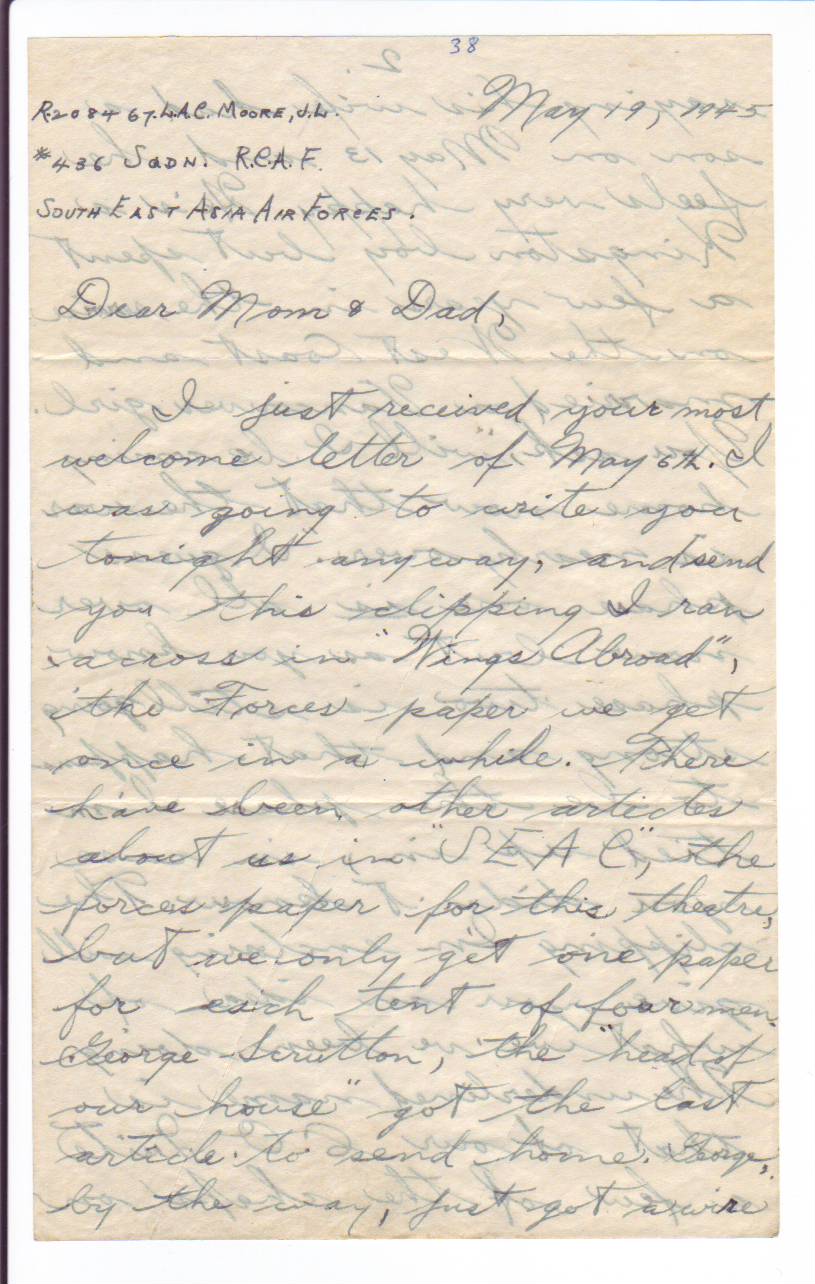 38
May 19, 1945
R208467. L.A.C. MOORE, J.L.
#436 SQDN. R.C.A.F.
SOUTH EAST ASIA AIR FORCES.
Dear Mom & Dad,
I just received your most
welcome letter of May 6th. I
was going to write you
tonight anyway, and send
you this clipping I ran
across in "Wings Abroad",
the Forces paper we get
once in a while. There
have been other articles
about us in "S E A C", the
forces paper for this theatre,
but we only get one paper
for each tent of four men.
George Scrutton, the "head of
our house" got the last
article to send home. George,
by the way, just got a wire